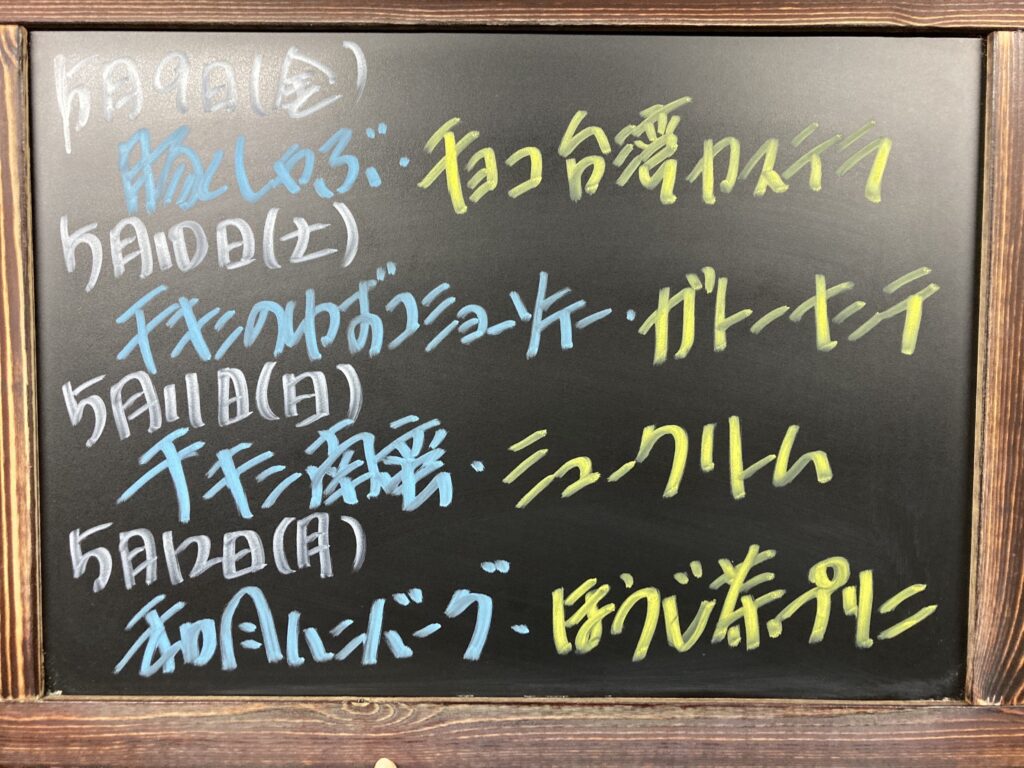 5月9日(金)
豚しゃぶ・チョコ台湾カステラ
5月10日(土)
チキンのゆずコショーソテー・ガトーセンテ
5月11日(日)
チキン南蛮・シュークリーム
5月12日(月)
和風ハンバーグ・ほうじ茶プリン